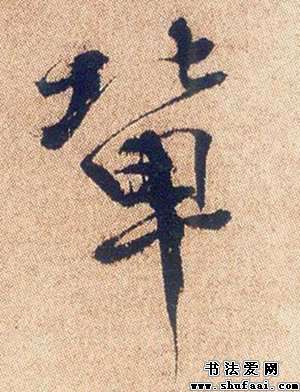 輩
书法爱网
www.shufaai.com